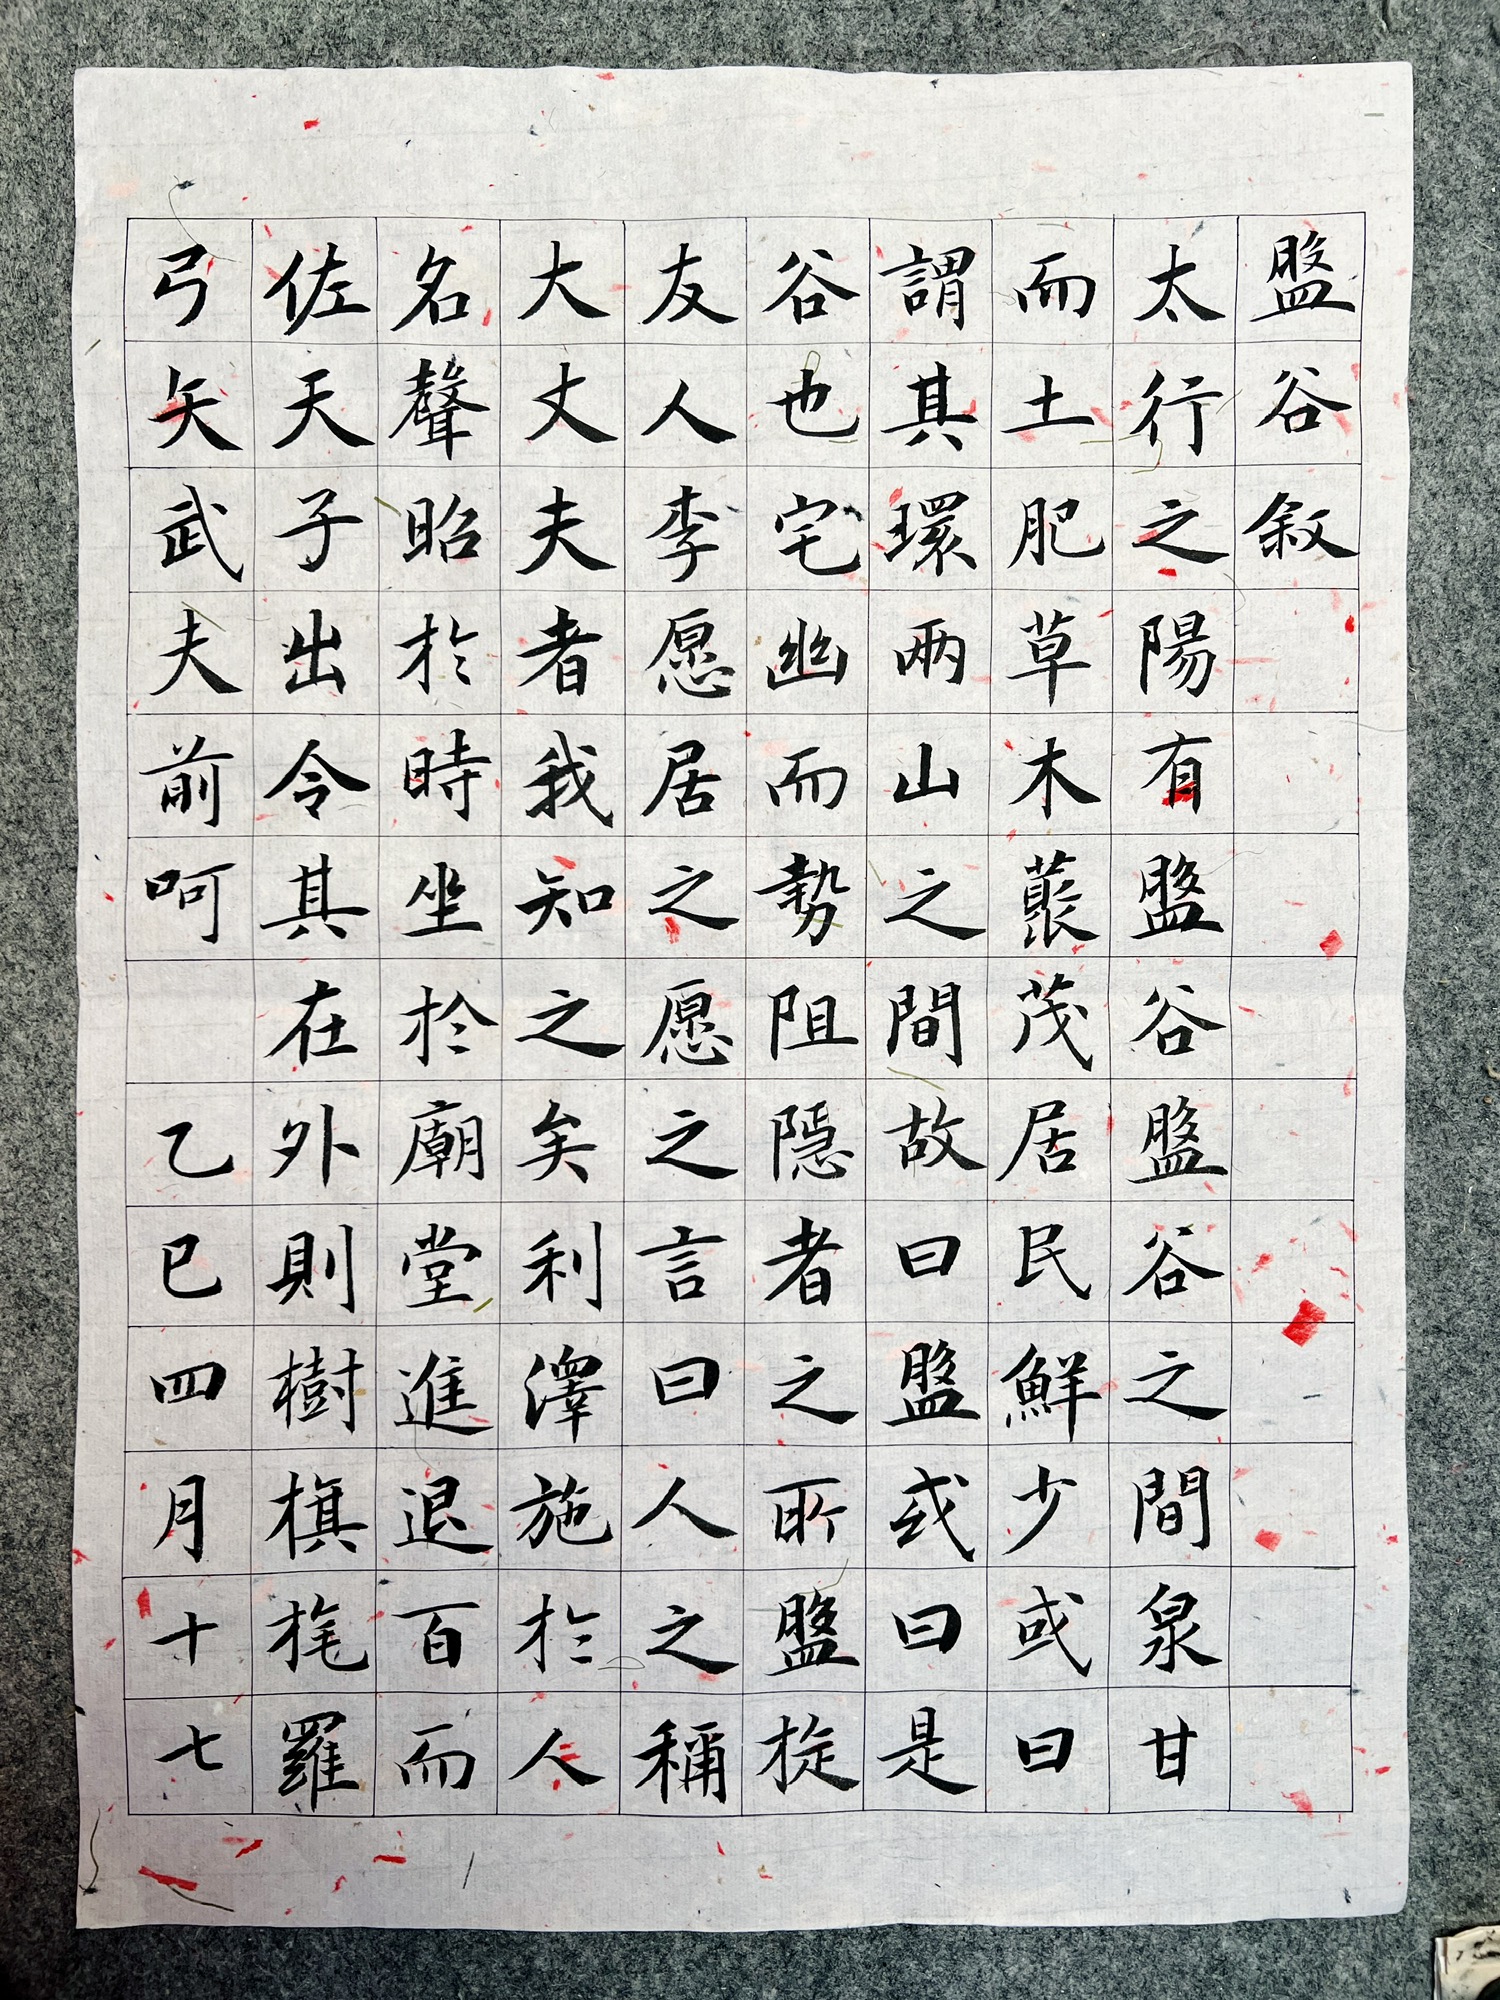 盤谷叙
太行之陽有盤谷盤谷之間泉甘
而土肥草木藂茂居民鮮少或曰
謂其環兩山之間故曰盤或曰是
谷也宅幽而勢阻隱者之所盤旋
友人李愿居之愿之言曰人之稱
大丈夫者我知之矣利澤施於人
名聲昭於時坐於廟堂進退百而
佐天子出令其在外則樹旗旄羅
弓矢武夫前呵 乙巳四月十七